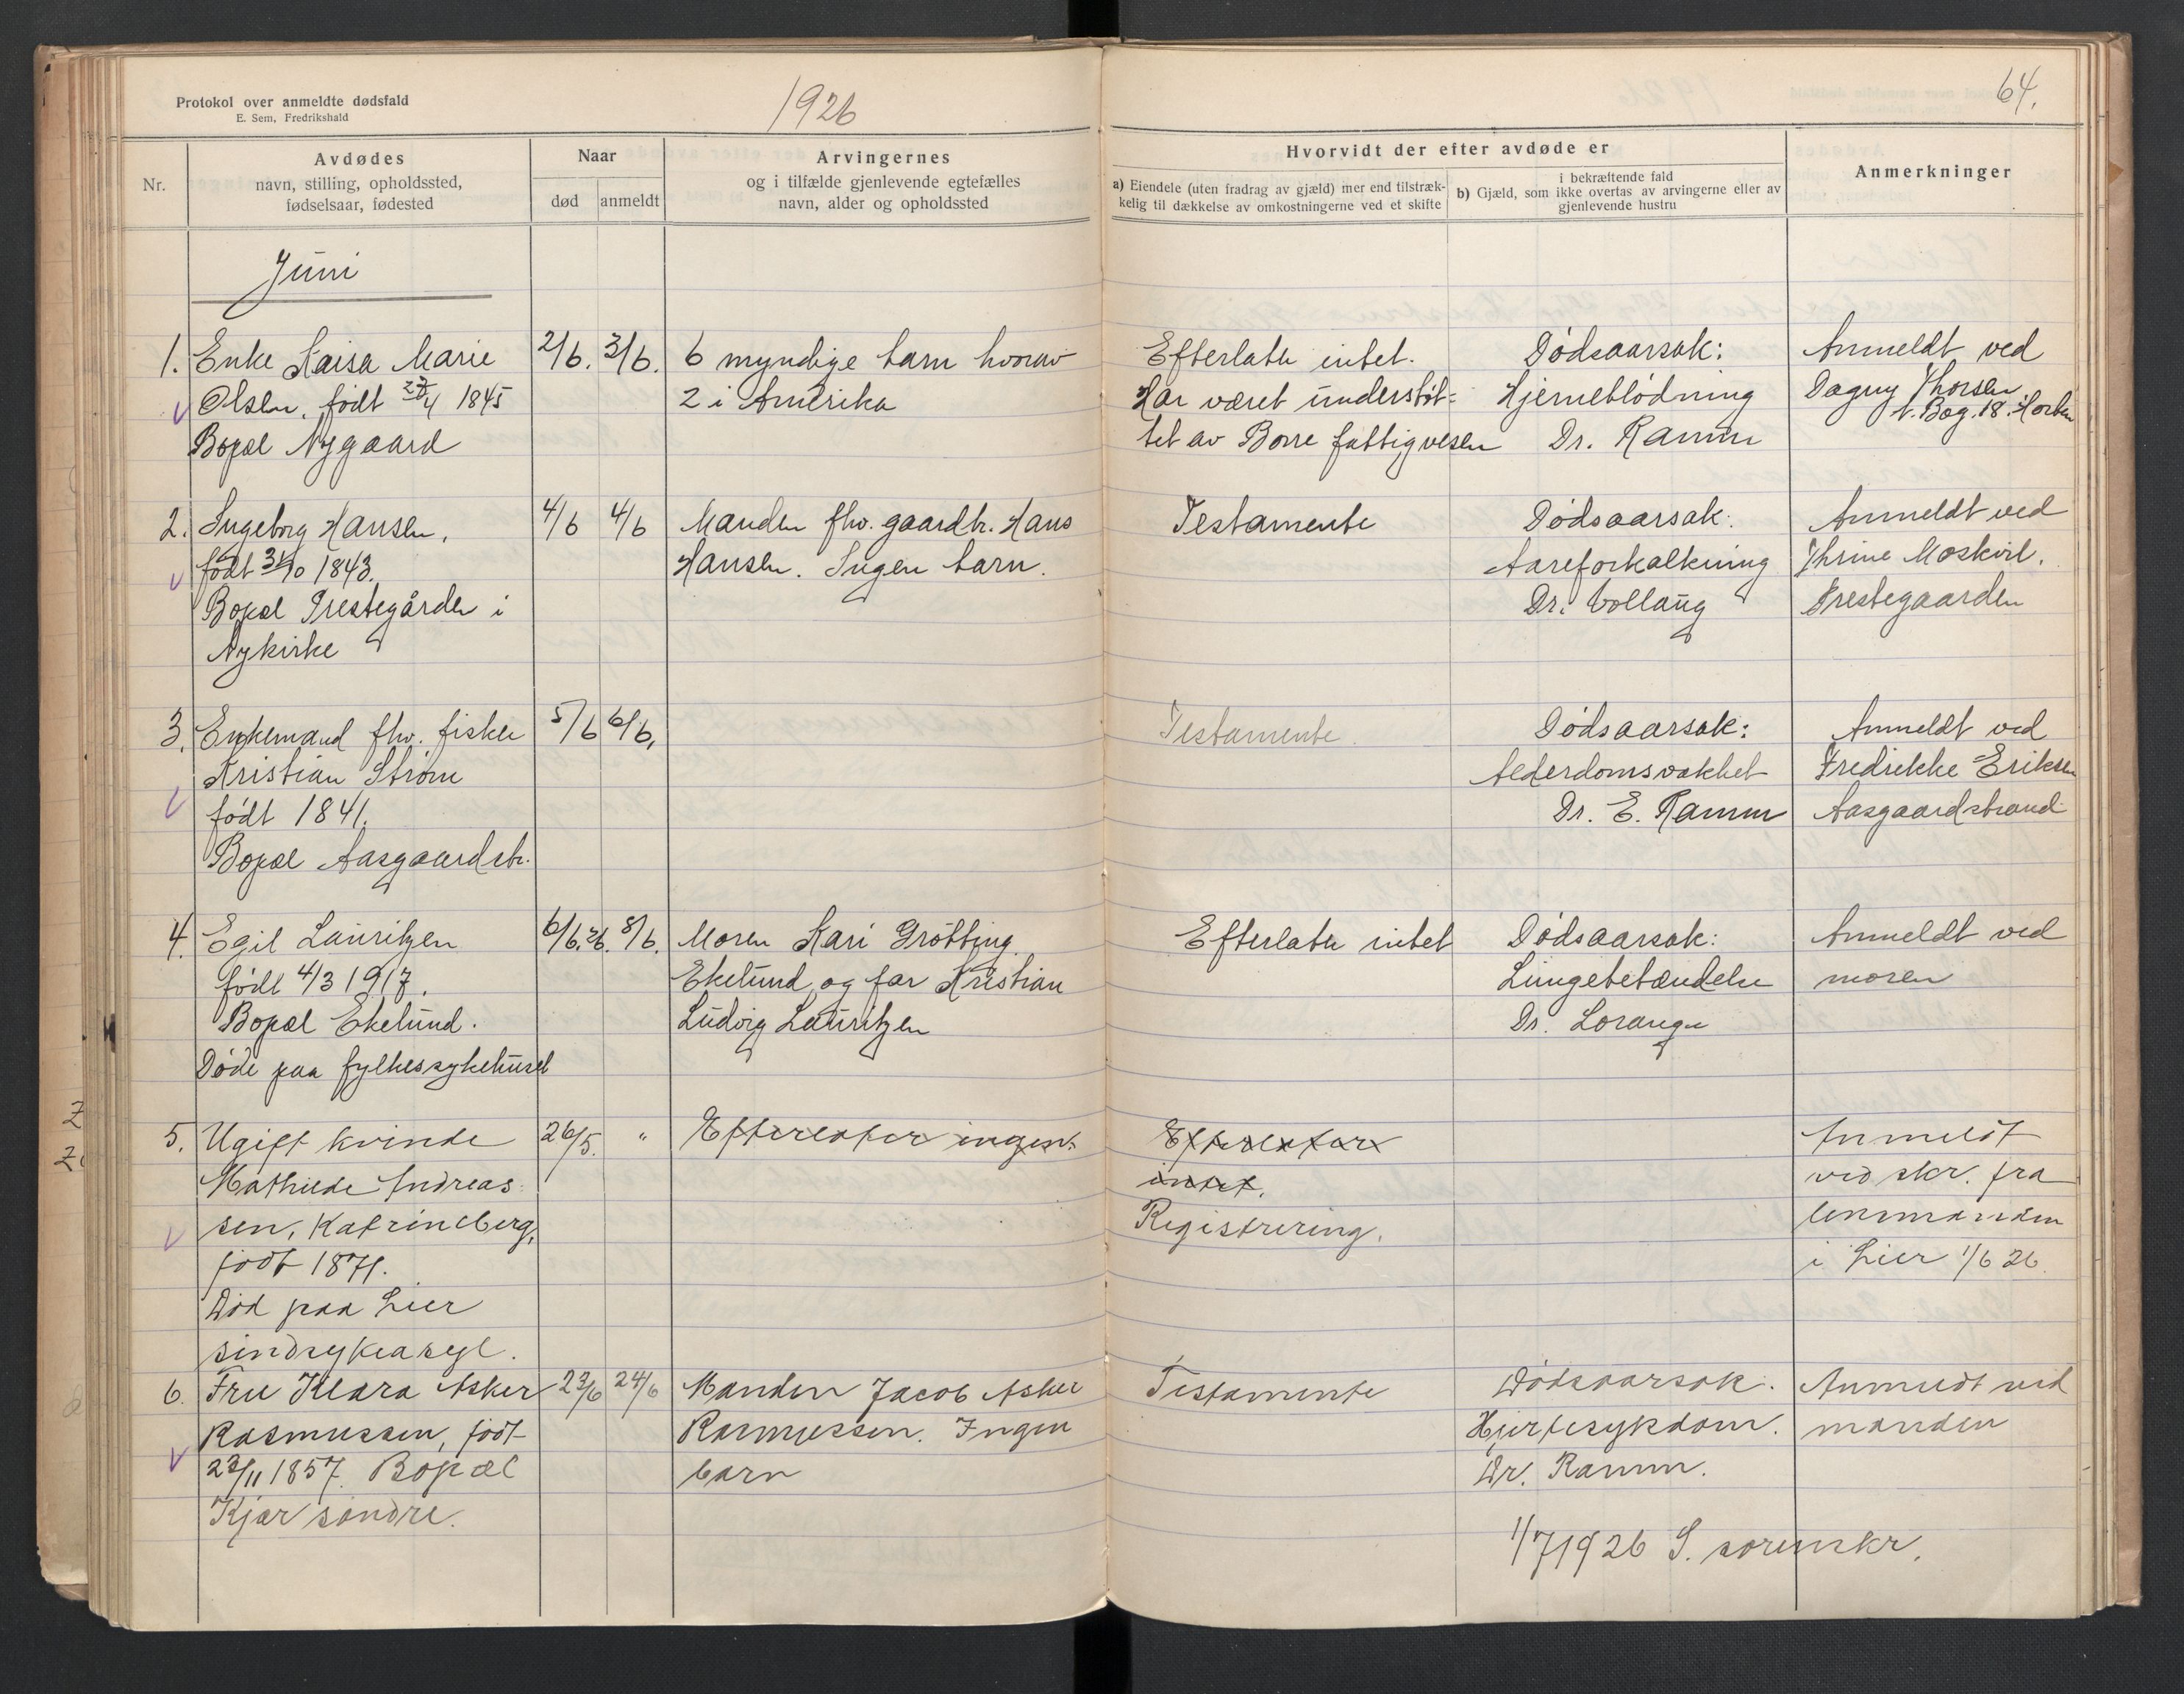 Protokol over anmeldte dødsfald
E. Sem, Fredrikshald
1926
64.
Nr.
Avdødes
navn, stilling, opholdssted,
fødselsaar, fødested
Naar
død
anmeldt
Arvingernes
og i tilfælde gjenlevende egtefælles
navn, alder og opholdssted
Hvorvidt der efter avdøde er
a) Eiendele (uten fradrag av gjæld) mer end tilstræk-
kelig til dækkelse av omkostningerne ved et skifte
i bekræftende fald
b) Gjæld, som ikke overtas av arvingerne eller av
gjenlevende hustru
Anmerkninger
Juni
1.
Enke Kaisa Marie
Olsen, født 4 1845
Bopæl Nygaard
2/6.
3/6.
6 myndige barn hvorav
2 i Amerika
Efterlater intet.
Har været understøt-
tet av Borre fattigvesen
Dødsaarsak:
Hjerneblødning
Dr. Ramm
Anmeldt ved
Dagny Thorsen
Horten
2.
Ingeborg Hansen,
født 31/10 1843.
Bopæl Prestegården i
Nykirke
4/6
4/6
Manden fhv. gaardbr. Hans
Hansen. Ingen barn.
Testamente
Dødsaarsak:
Aareforkalkning
Dr. Vollaug
Anmeldt ved
Thrine Moskvil.
Prestegaarden
3.
Enkemand fhv. fisker
Kristian Strøm
født 1841.
Bopæl Aasgaardstr.
5/6
6/6.
Testamente.
Dødsaarsak:
Alderdomsvakhet
Dr. E. Ramm
Anmeldt ved
Fredrikke Eriksen
Aasgaardstrand
4.
Egil Lauritzen
født 4/3 1917.
Bopæl Ekelund.
Døde paa fylkessykehuset
6/6.26.
8/6.
Moren Kari Grøtting
Ekelund og far Kristian
Ludvig Lauritzen
Efterlater intet
Dødsaarsak:
Lungebetændelse
Dr. Lorange
Anmeldt ved
moren
5.
Ugift kvinde
Mathilde Andreas-
sen, Katrineberg,
født 1871.
Død paa Lier
sindsykeasyl.
26/5.
"
Efterlater ingen.
Efterlater
intet.
Registrering.
Anmeldt
ved skr. fra
lensmanden
i Lier 1/6 26.
6.
Fru Klara Asker
Rasmussen, født
23/11 1857. Bopæl
Kjær søndre.
23/6
24/6
Manden Jacob Asker
Rasmussen. Ingen
barn
Testamente
Dødsaarsak:
Hjertesykdom.
Dr. Ramm.
Anmeldt ved
manden
1/7 1926 S. sorenskr.